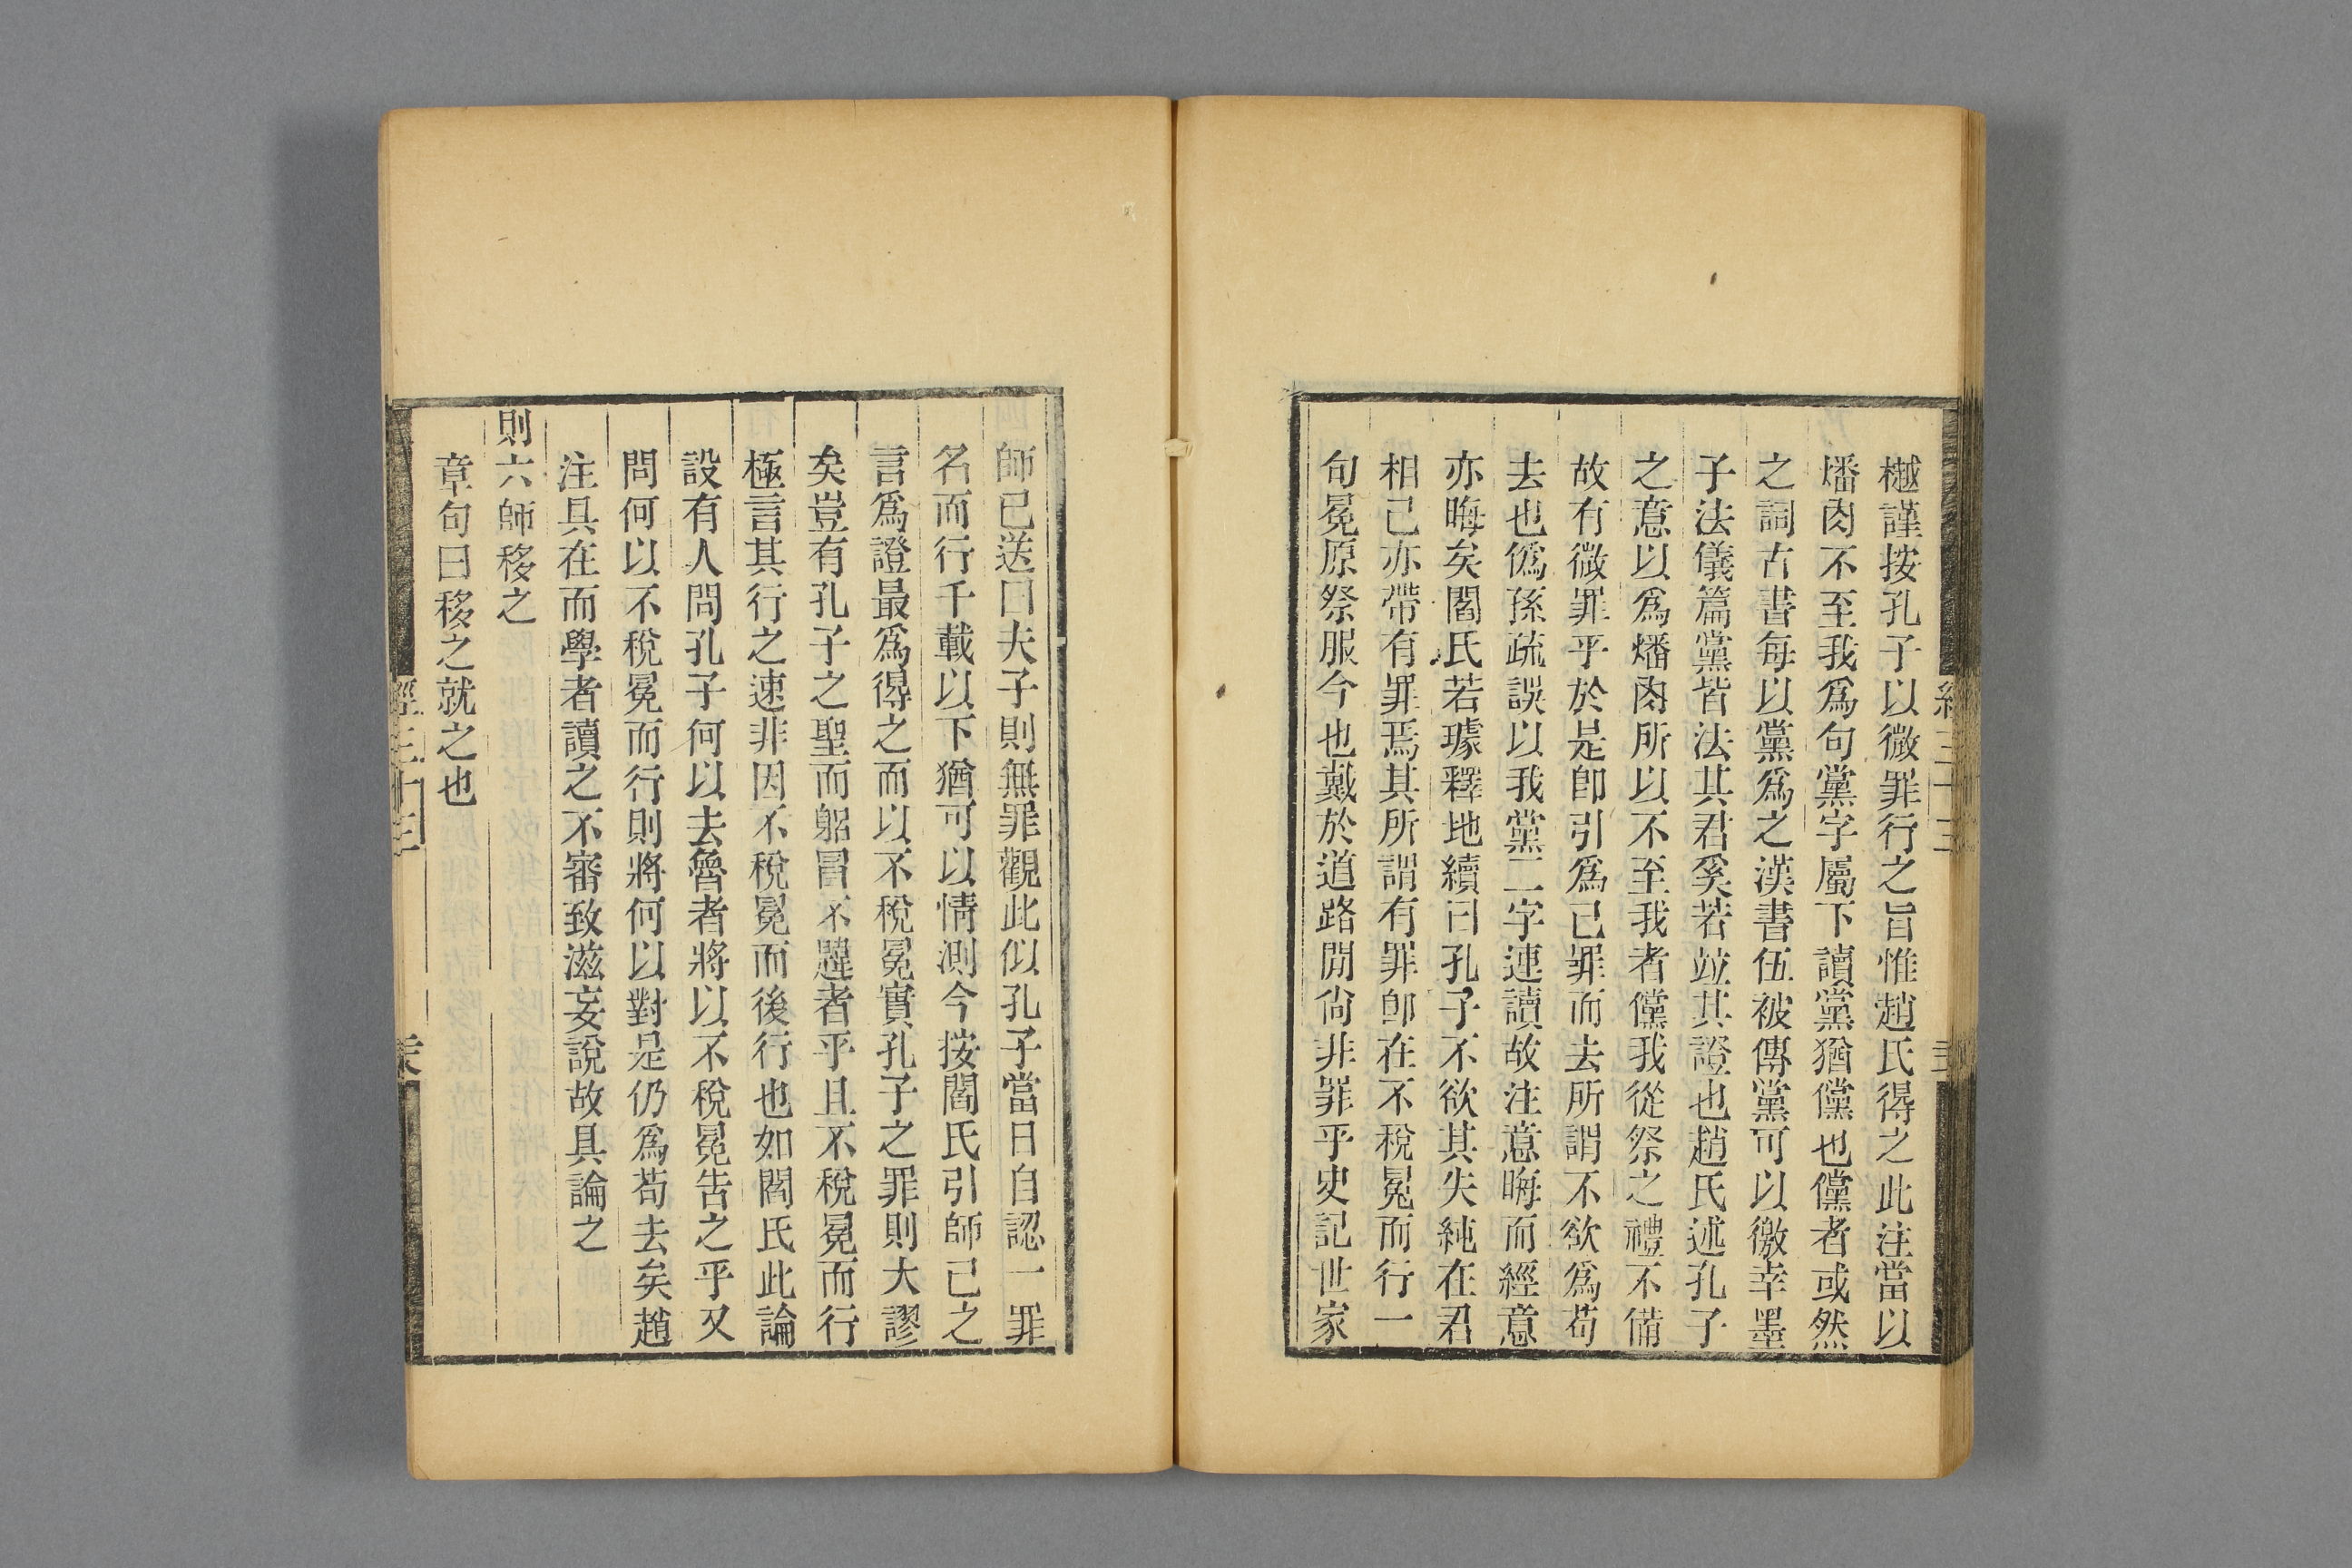 樾謹按孔子以微罪行之旨惟趙氏得之此注當以
燔肉不至我爲句黨字屬下讀黨猶儻也儻者或然
之詞古書每以黨爲之漢書伍被傳黨可以徼幸墨
子法儀篇黨皆法其君奚若竝其證也趙氏述孔子
之意以爲燔肉所以不至我者儻我從祭之禮不備
故有微罪乎於是卽引爲己罪而去所謂不欲爲苟
去也僞孫疏誤以我黨二字連讀故注意晦而經意
亦晦矣閻氏若璩釋地續曰孔子不欲其失純在君
相己亦帶有罪焉其所謂有罪卽在不稅冕而行一
句冕原祭服今也戴於道路閒尙非罪乎史記世家
師己送曰夫子則無罪觀此似孔子當日自認一罪
名而行千載以下猶可以情測今按閻氏引師己之
言爲證最爲得之而以不稅冕實孔子之罪則大謬
矣豈有孔子之聖而躬冒不韙者乎且不稅冕而行
極言其行之速非因不稅冕而後行也如閻氏此論
設有人問孔子何以去魯者將以不稅冕告之乎又
問何以不稅冕而行則將何以對是仍爲苟去矣趙
注具在而學者讀之不審致滋妄說故具論之
則六師移之
章句曰移之就之也
經三十三